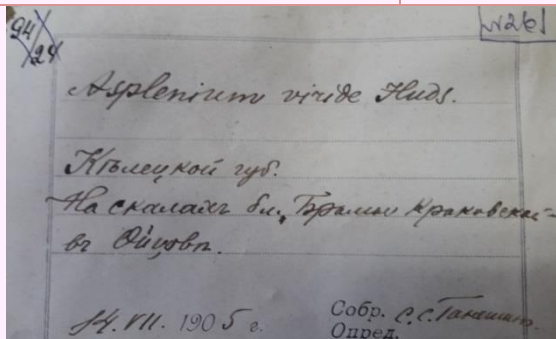 94
24
N261
Asplenium viride Huds.
Кѣлецкой губ.
На скалахъ бл. „Брамы Краковской“
въ Ойцовѣ.
14. VII. 1905 г.
Собр. С.С. Ганешин.
Опред.